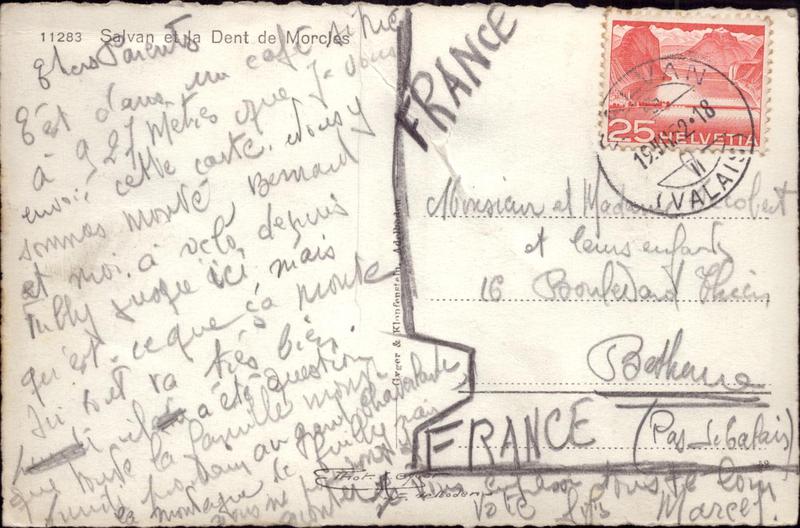 11283 Salvan et la Dent de Morcles
Chers Parents
C'est dans un café situé
à 927 Mètres que je vous
envoie cette carte. Nous y
sommes monté Bernard
et moi à vélo depuis
Fully jusqu'ici, mais
qu'est-ce que ça monte
Ici tout va très bien.
il a été question
que toute la famille monte
lundi prochain au
la montagne de Fully
nous ne
vous tous de loin
Votre fils Marcel
Gyger & Klopfenstein, Adelboden
Phot.
FRANCE
25 HELVETIA
SALVAN
19.VII.52-18
(VALAIS)
Monsieur et Madame
et leurs enfants
16 Boulevard Thiers
Bethune
FRANCE (Pas de Calais)